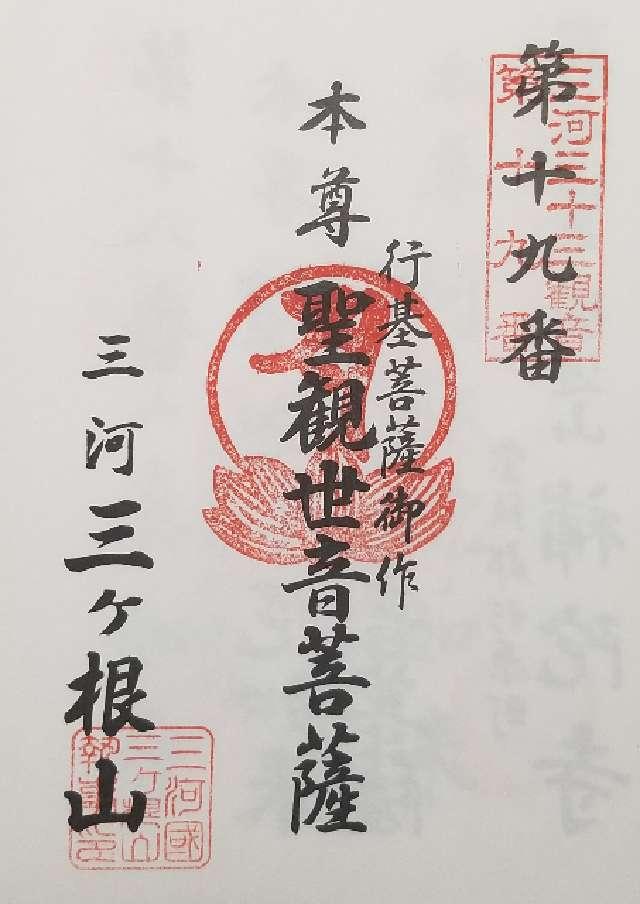 第十九番
三河三十三観音
第十九番
行基菩薩御作
本尊 聖観世音菩薩
三河 三ヶ根山
三河國
三ヶ根山
執事印